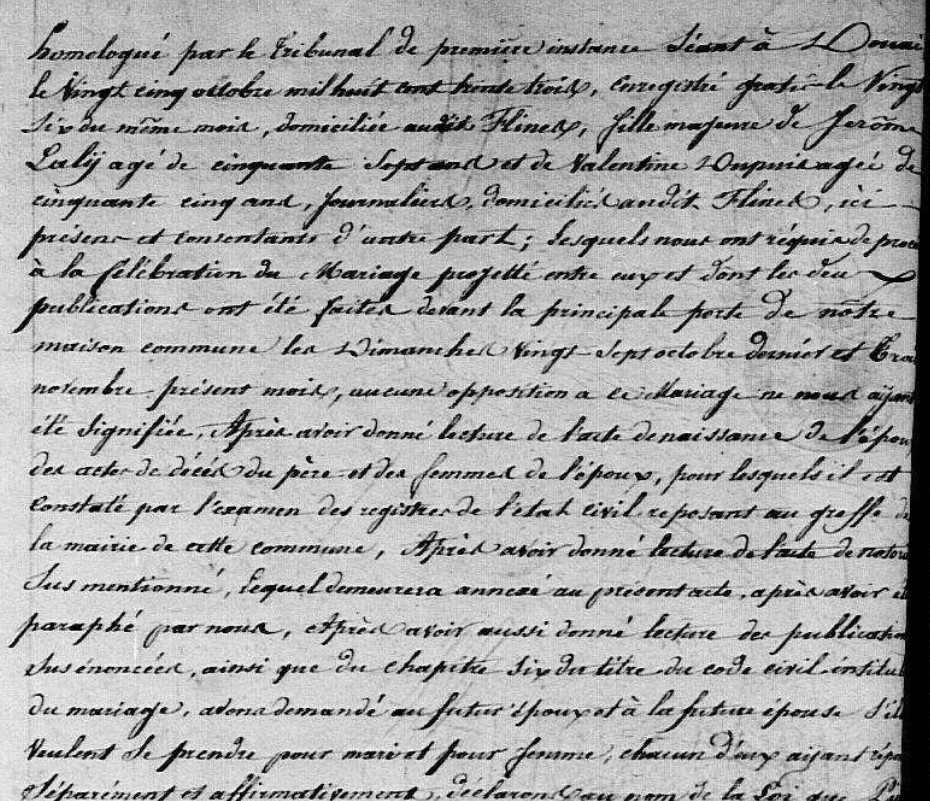 homologué par le Tribunal de première instance Séant à Douai
le Vingt cinq octobre mil huit cent trente trois, enregistré gratis le Vingt
Six du même mois, domiciliée audit Flines, fille majeure de Jerôme
Laly agé de cinquante Sept ans et de Valentine Dupuis agée de
cinquante cinq ans, Journaliers, domiciliés audit Flines, ici
présens et consentants d'autre part; Lesquels nous ont réquis de proce
à la Célébration du Mariage projetté entre eux et dont les deux
publications ont été faites devant la principale porte de nôtre
maison commune les Dimanches Vingt Sept octobre dernier et Trois
novembre présent mois, aucune opposition a ce Mariage ne nous aijant
été Signifiée, Après avoir donné lecture de l'acte de naissance de l'époux
des actes de décès du père et des femmes de l'époux, pour lesquels il est
constaté par l'examen des registres de l'état civil reposant au greffe de
la mairie de cette commune, Après avoir donné lecture de l'acte de notori
Sus mentionné, Lequel demeurera annexé au présent acte, après avoir été
paraphé par nous, Après avoir aussi donné lecture des publications
Sus énoncées, ainsi que du chapitre Six du titre du code civil intitulé
du mariage, avons demandé au futur époux et à la future épouse S'ils
Veulent Se prendre pour mari et pour femme, chacun d'eux aijant répon
Séparément et affirmativement, déclarons au nom de la Loi que